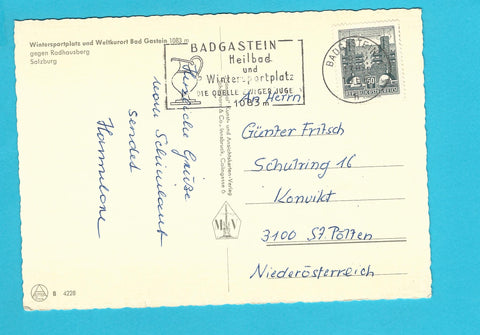 Wintersportplatz und Weltkurort Bad Gastein 1083 m
gegen Radhausberg
Salzburg
BADGASTEIN
Heilbad
und
Wintersportplatz
DIE QUELLE EWIGER JUGE
1083 m
BADGASTEIN
50
REPUBLIK ÖSTERREICH
Herzliche Grüße
vom Schiurlaub
sendet
Kunst- und Ansichtskarten-Verlag
& Co., Innsbruck
An Herrn
Günter Fritsch
Schulring 16
Konvikt
3100 St. Pölten
Niederösterreich
B 4228